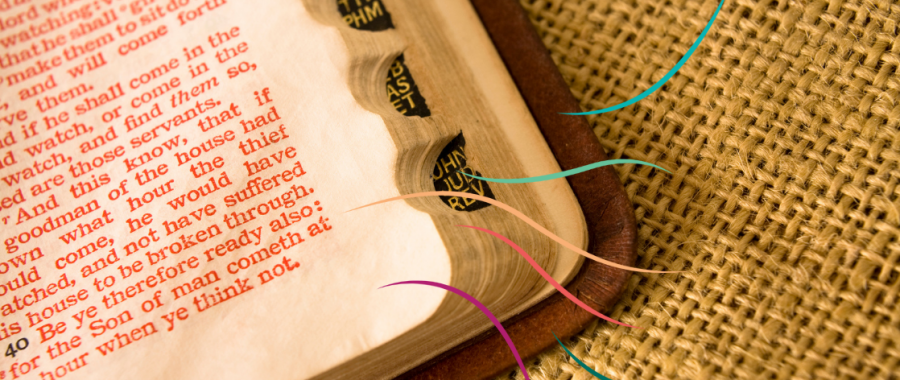 lord
watching: 
that he shall
make them to sit do
, and will come forth
ve them.
d if he shall come in the
d watch, or come in the
watch, and find them so,
ed are those servants.
And this know, that if
goodman of the house had
own what hour the thief
ould come, he would have
atched, and not have suffered
is house to be broken through.
40 Be ye therefore ready also:
for the Son of man cometh at
hour when ye think not.
PHM
AB
AS
ET
JOHN
JUD
REV